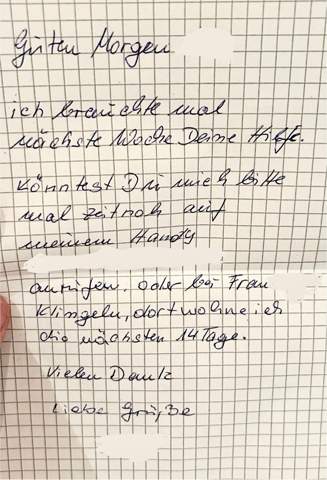 Guten Morgen
ich brauchte mal
nächste Woche Deine Hilfe.
Könntest Du mich bitte
mal zeitnah auf
meinem Handy
anrufen. oder bei Frau
Klingeln, dort wohne ich
die nächsten 14 Tage.
Vielen Dank
Liebe Grüße